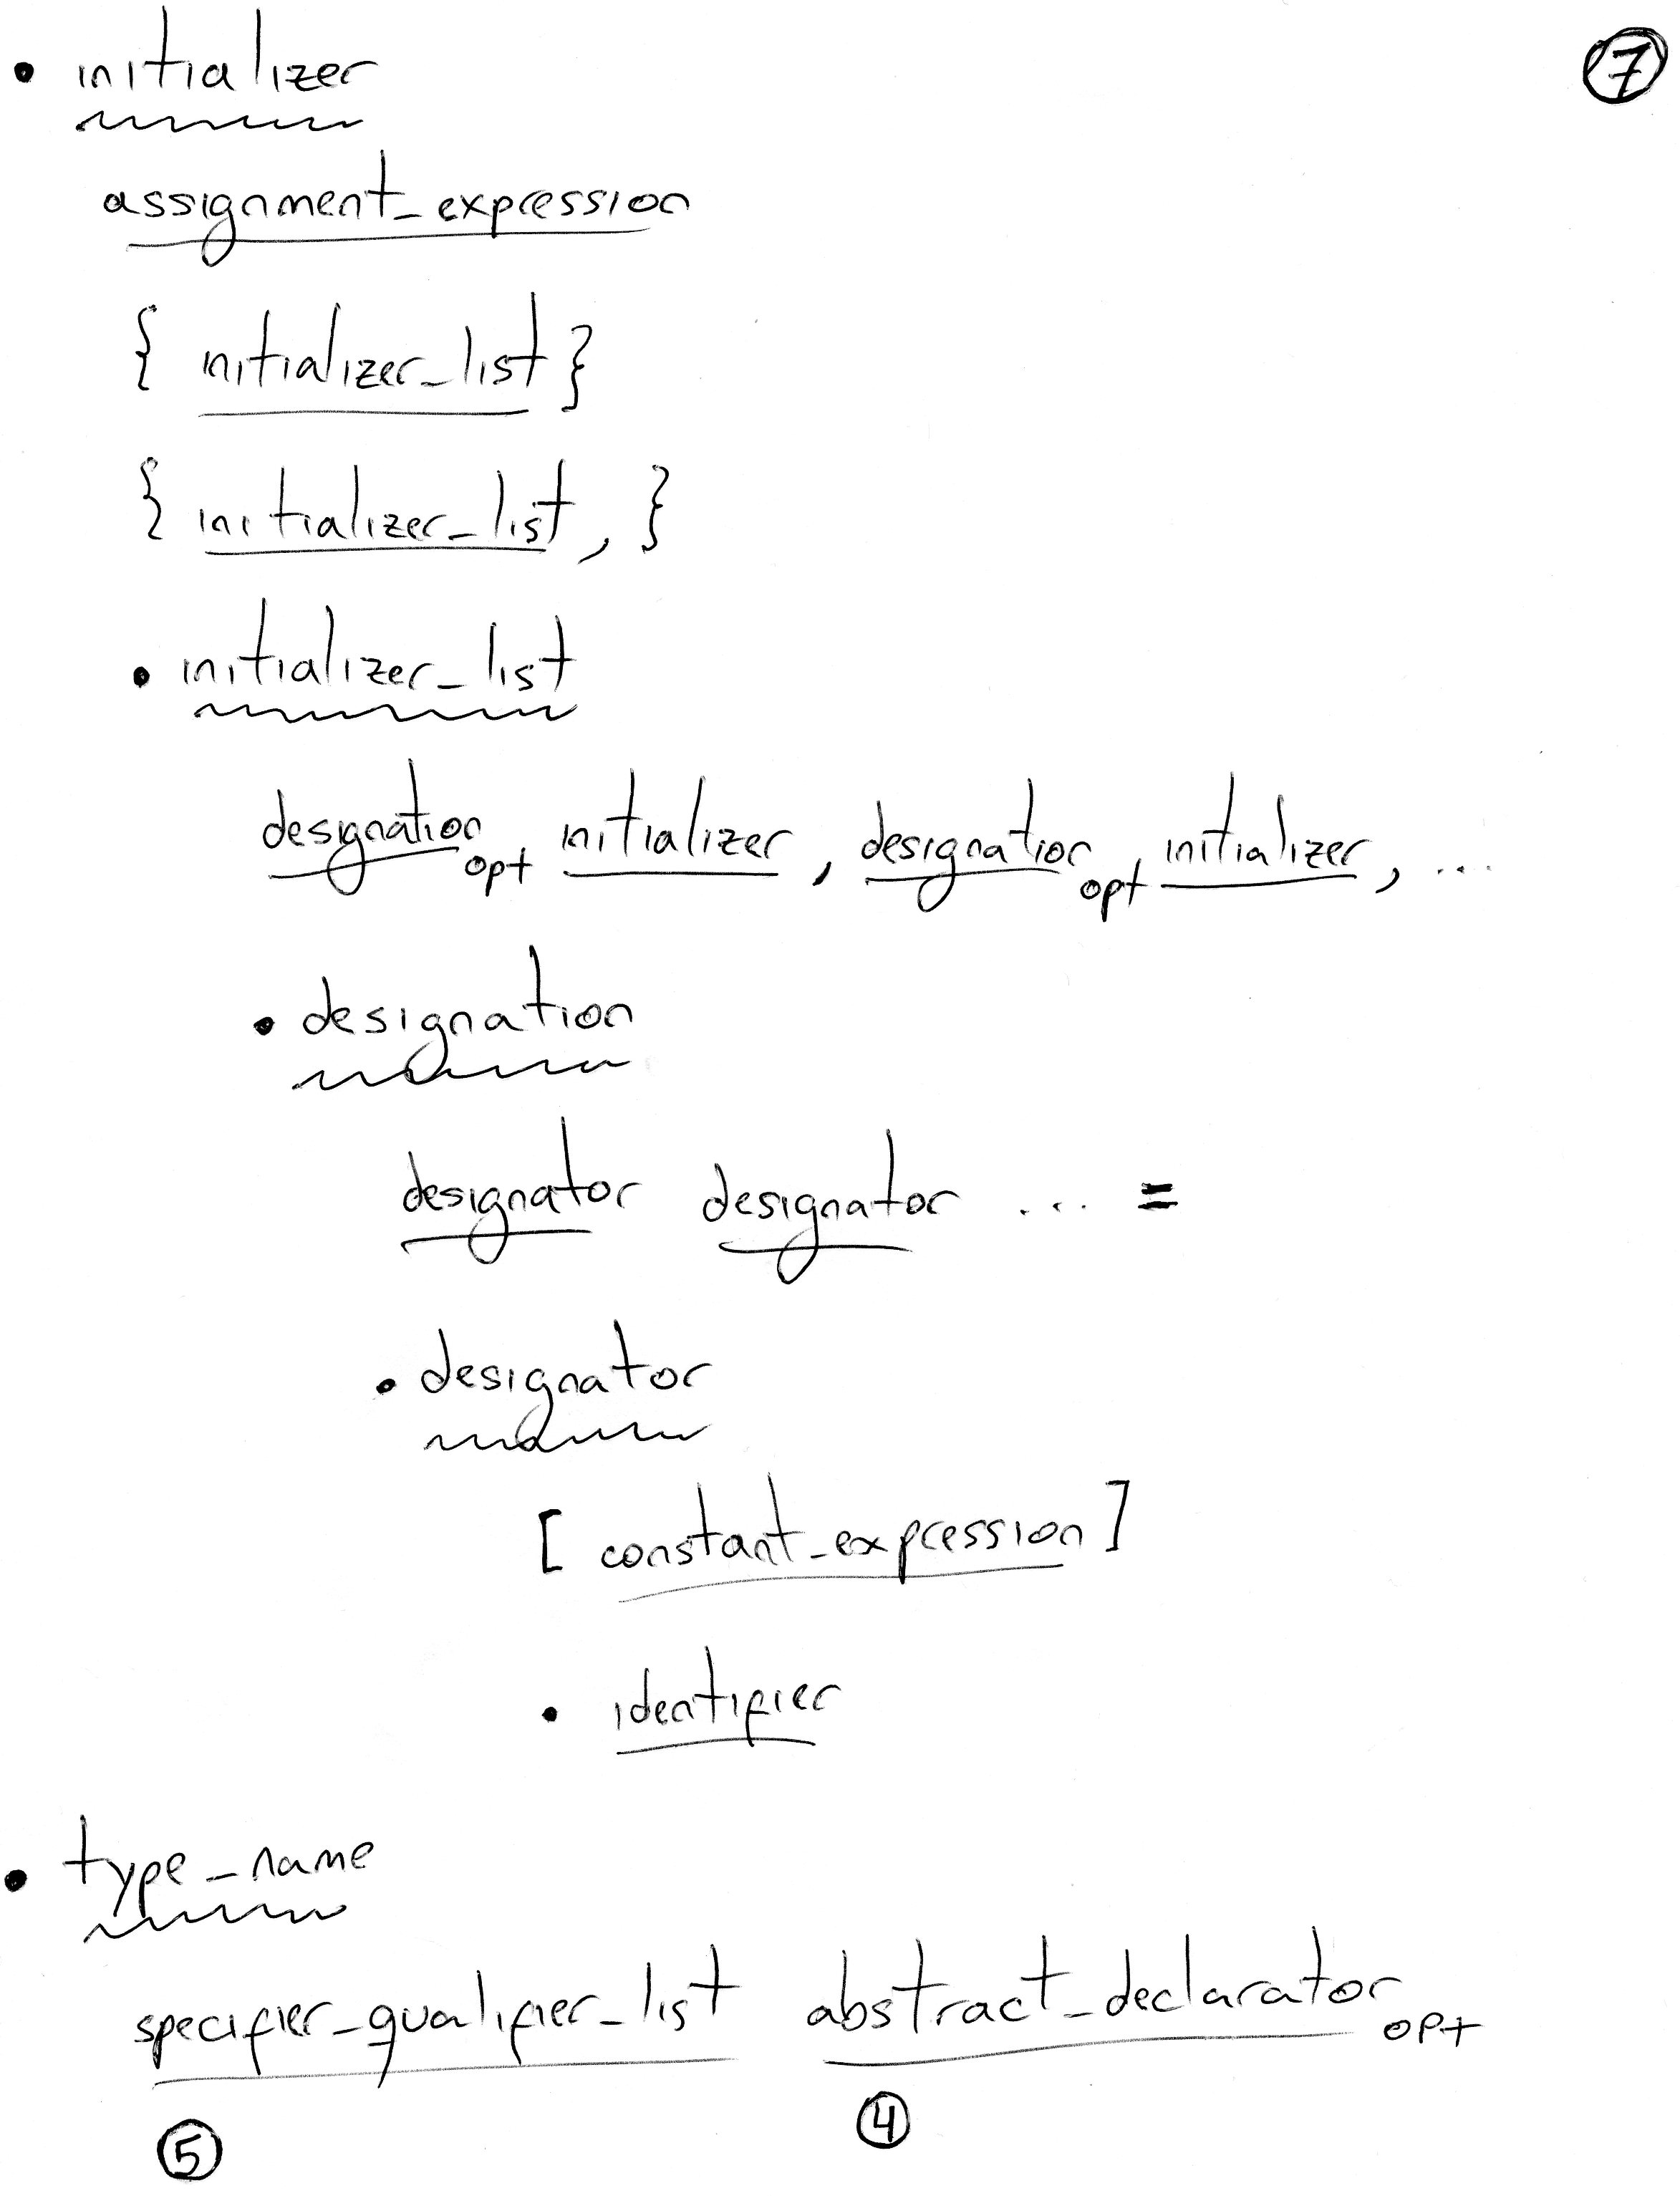 • initializer ⑦
assignment_expression
{ initializer_list }
{ initializer_list , }
• initializer_list
designation opt initializer , designation opt , initializer , ...
• designation
designator designator ... =
• designator
[ constant_expression ]
• identifier
• type_name
specifier_qualifier_list abstract_declarator opt
⑤ ④